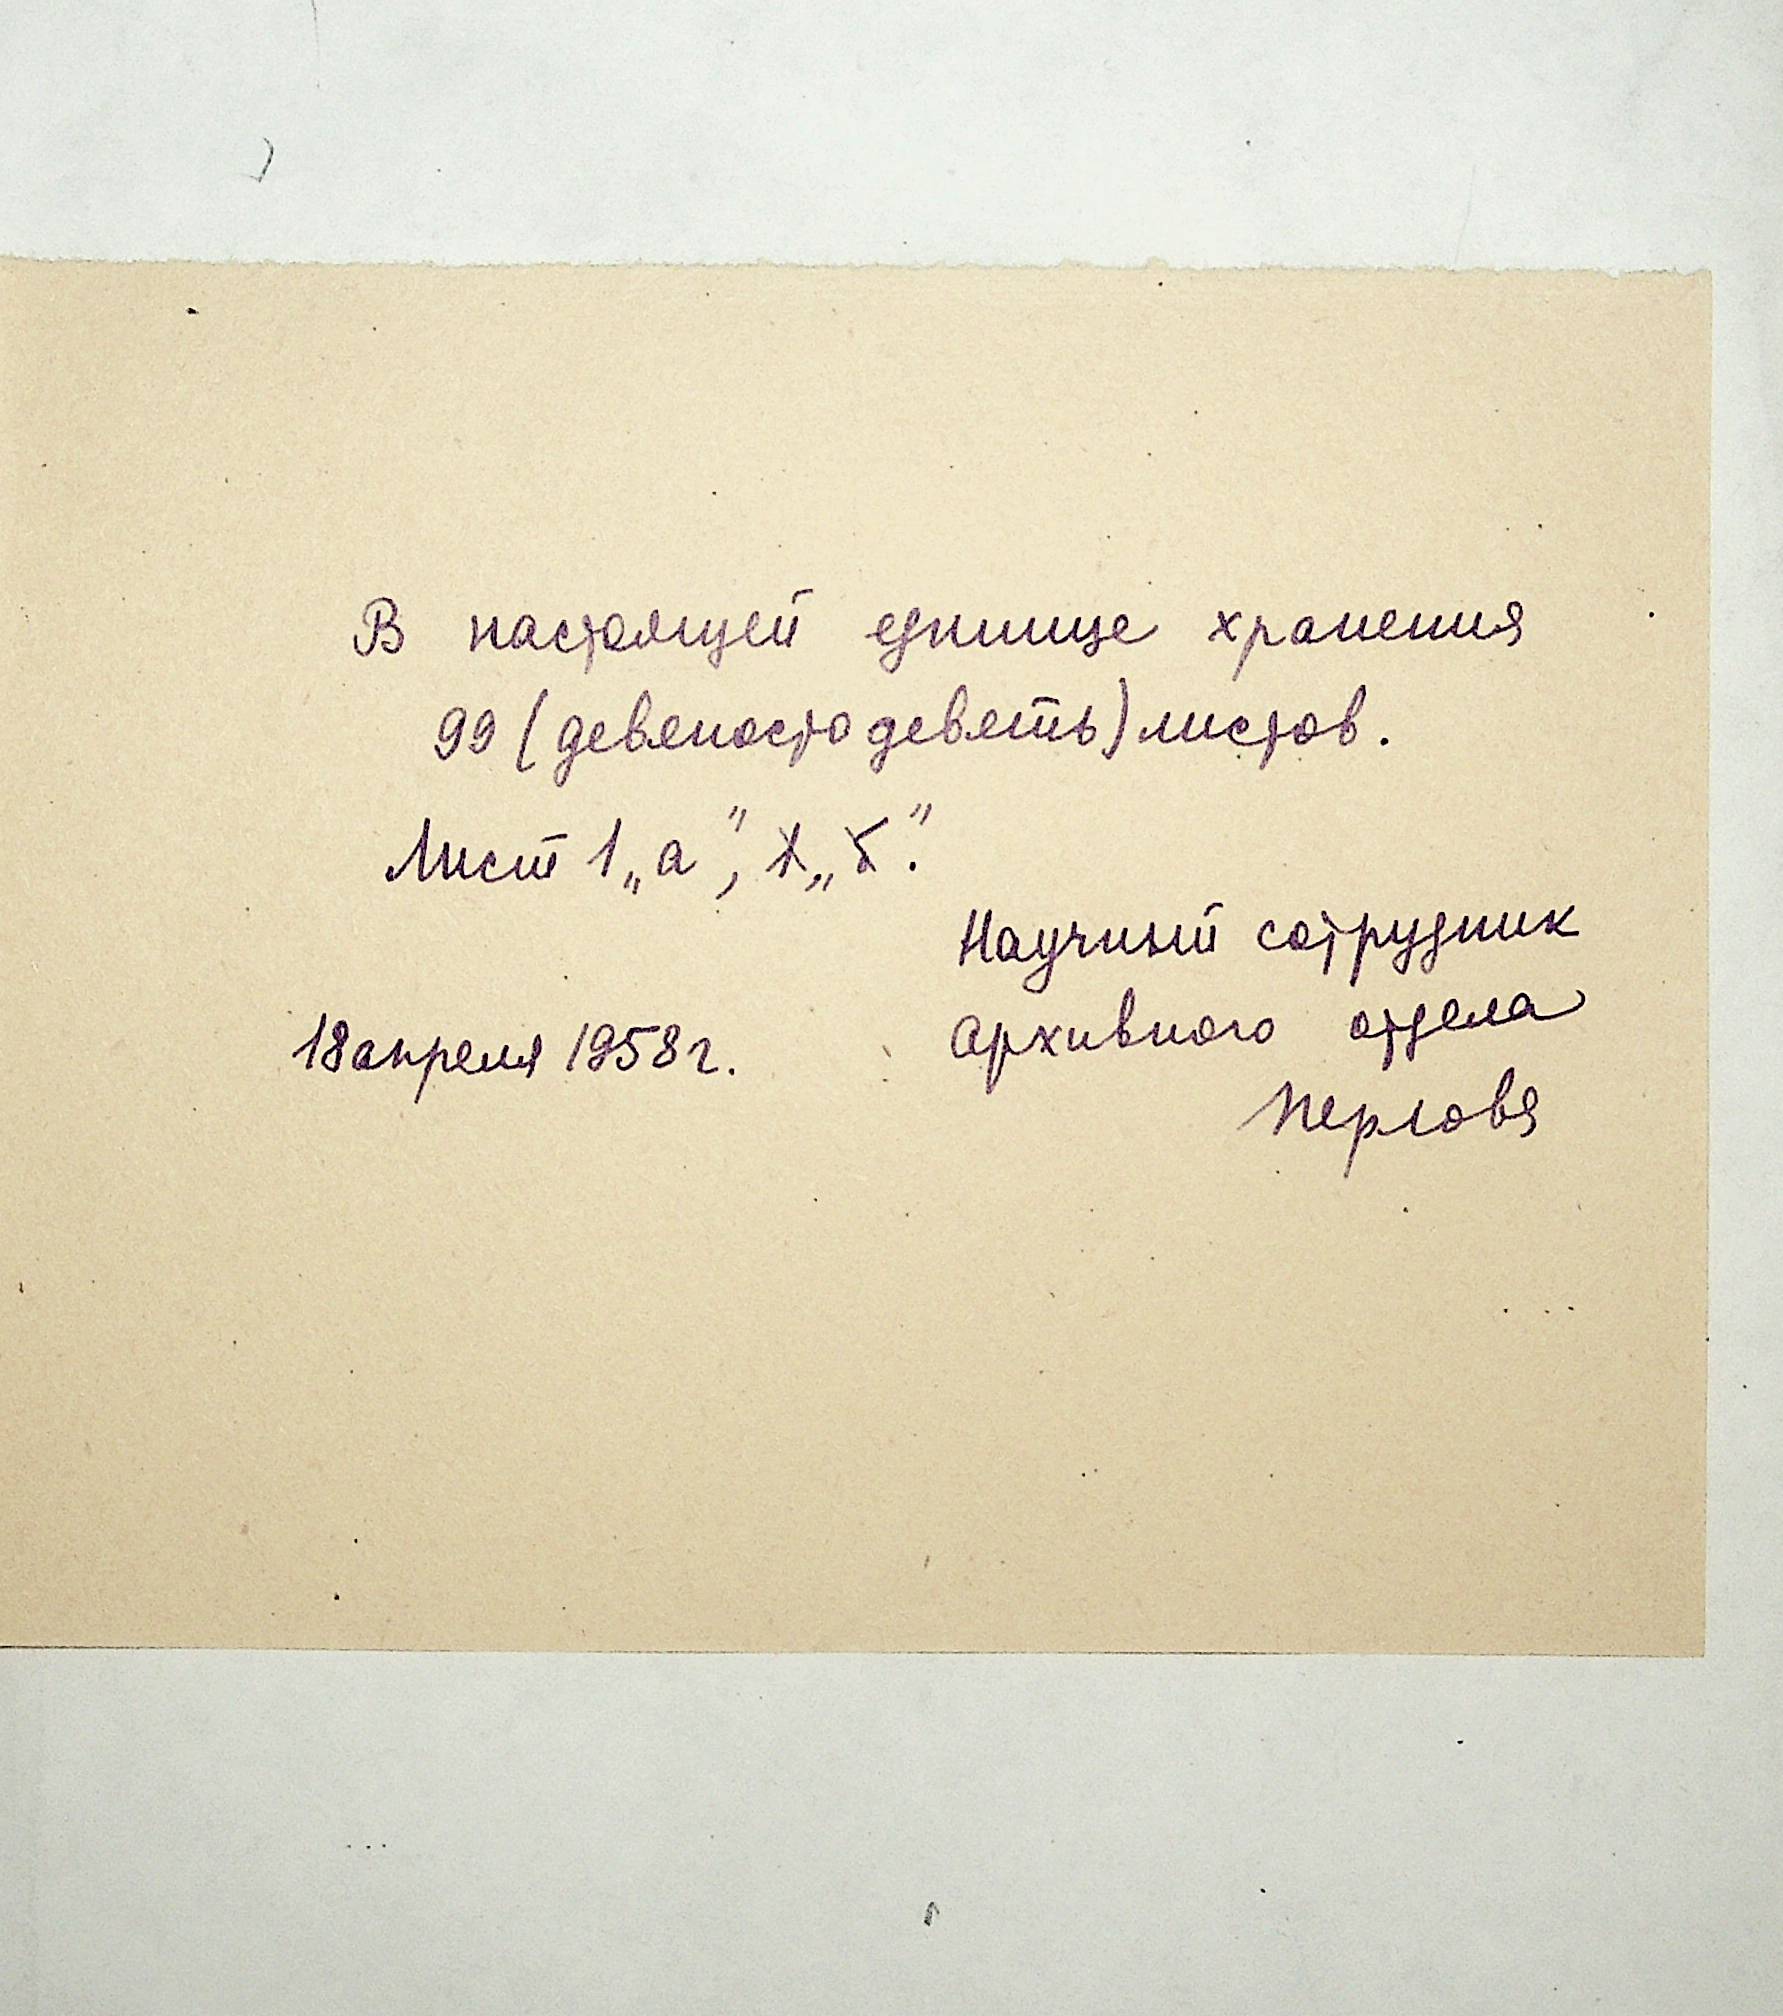 В настоящей единице хранения
99 (девяносто девять) листов.
Лист 1 „а”,
Научный сотрудник
Архивного отдела
18 апреля 1958 г.